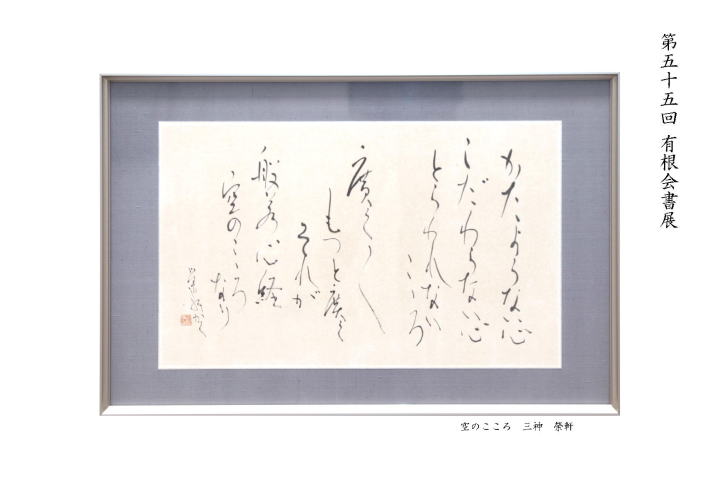 第五十五回 有根会書展
かたよらない心
こだわらない心
とらわれない
こころ
廣く廣く
もっと廣く
これが
般若心経
空のこころ
なり
空のこころ 三神 榮軒